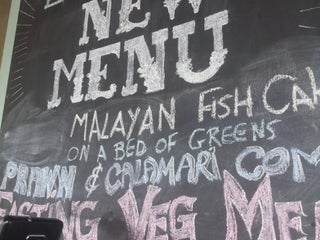 NEW
MENU
MALAYAN FISH CAK
ON A BED OF GREENS
PRAWN & CALAMARI COM
ASTING VEG ME